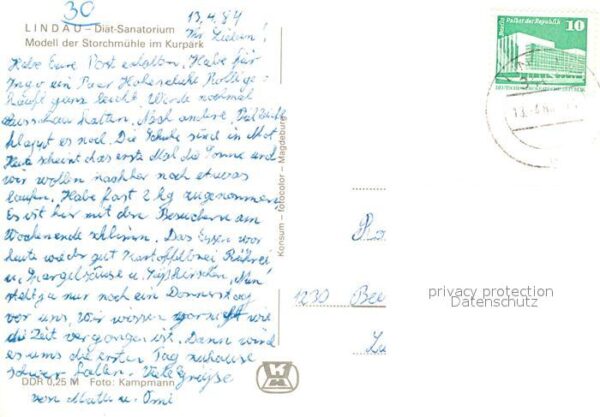 30
13.4.84
LINDAU – Diät-Sanatorium
Modell der Storchmühle im Kurpark
Ihr Lieben!
Habe Eure Post erhalten. Habe für
ein Paar Holzschuhe
ganz leicht. Werde nochmal
Ausschau halten. Nach andere. Vielleicht
klappt es noch. Die Schuhe sind in Rot
Heute scheint das erste Mal die Sonne und
wir wollen nachher noch etwas
laufen. Habe fast 2 kg zugenommen
Es ist hier mit den Besuchern am
Wochenende schlimm. Das Essen war
heute wieder gut Kartoffelbrei Rührei
u. Spargelgemüse u. Süßkirschen. Nun
steht ja nur noch ein Donnerstag
vor uns, wir wissen garnicht wie
die Zeit vergangen ist. Dann wird
es uns die ersten Tag zuhause
schwer fallen. Viele Grüße
von Mutti u. Omi
DDR 0,25 M Foto: Kampmann
Konsum – fotocolor – Magdeburg
Berlin Palast der Republik
10
DEUTSCHE DEMOKRATISCHE REPUBLIK
1230 Bee
privacy protection
Datenschutz